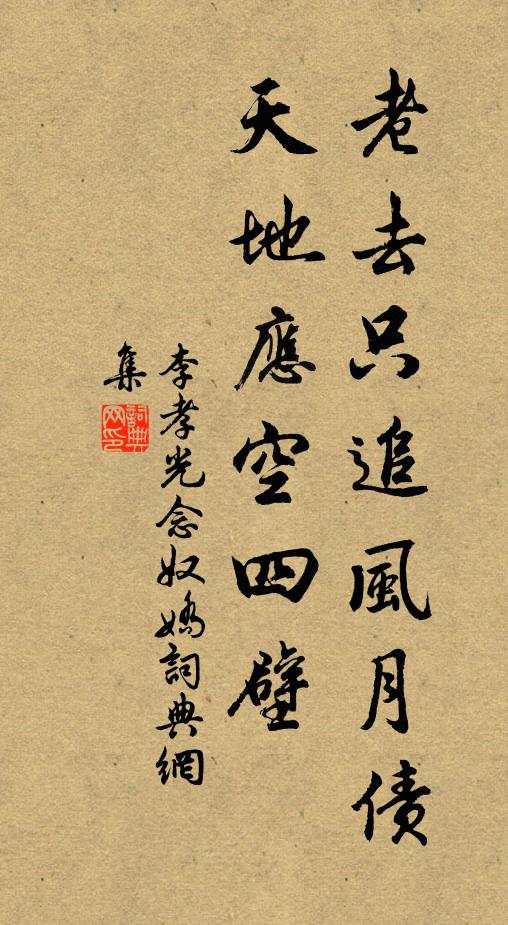 老去只追風月债
天地應空四壁
李孝光念奴嬌詞典網
集
詞典
网印